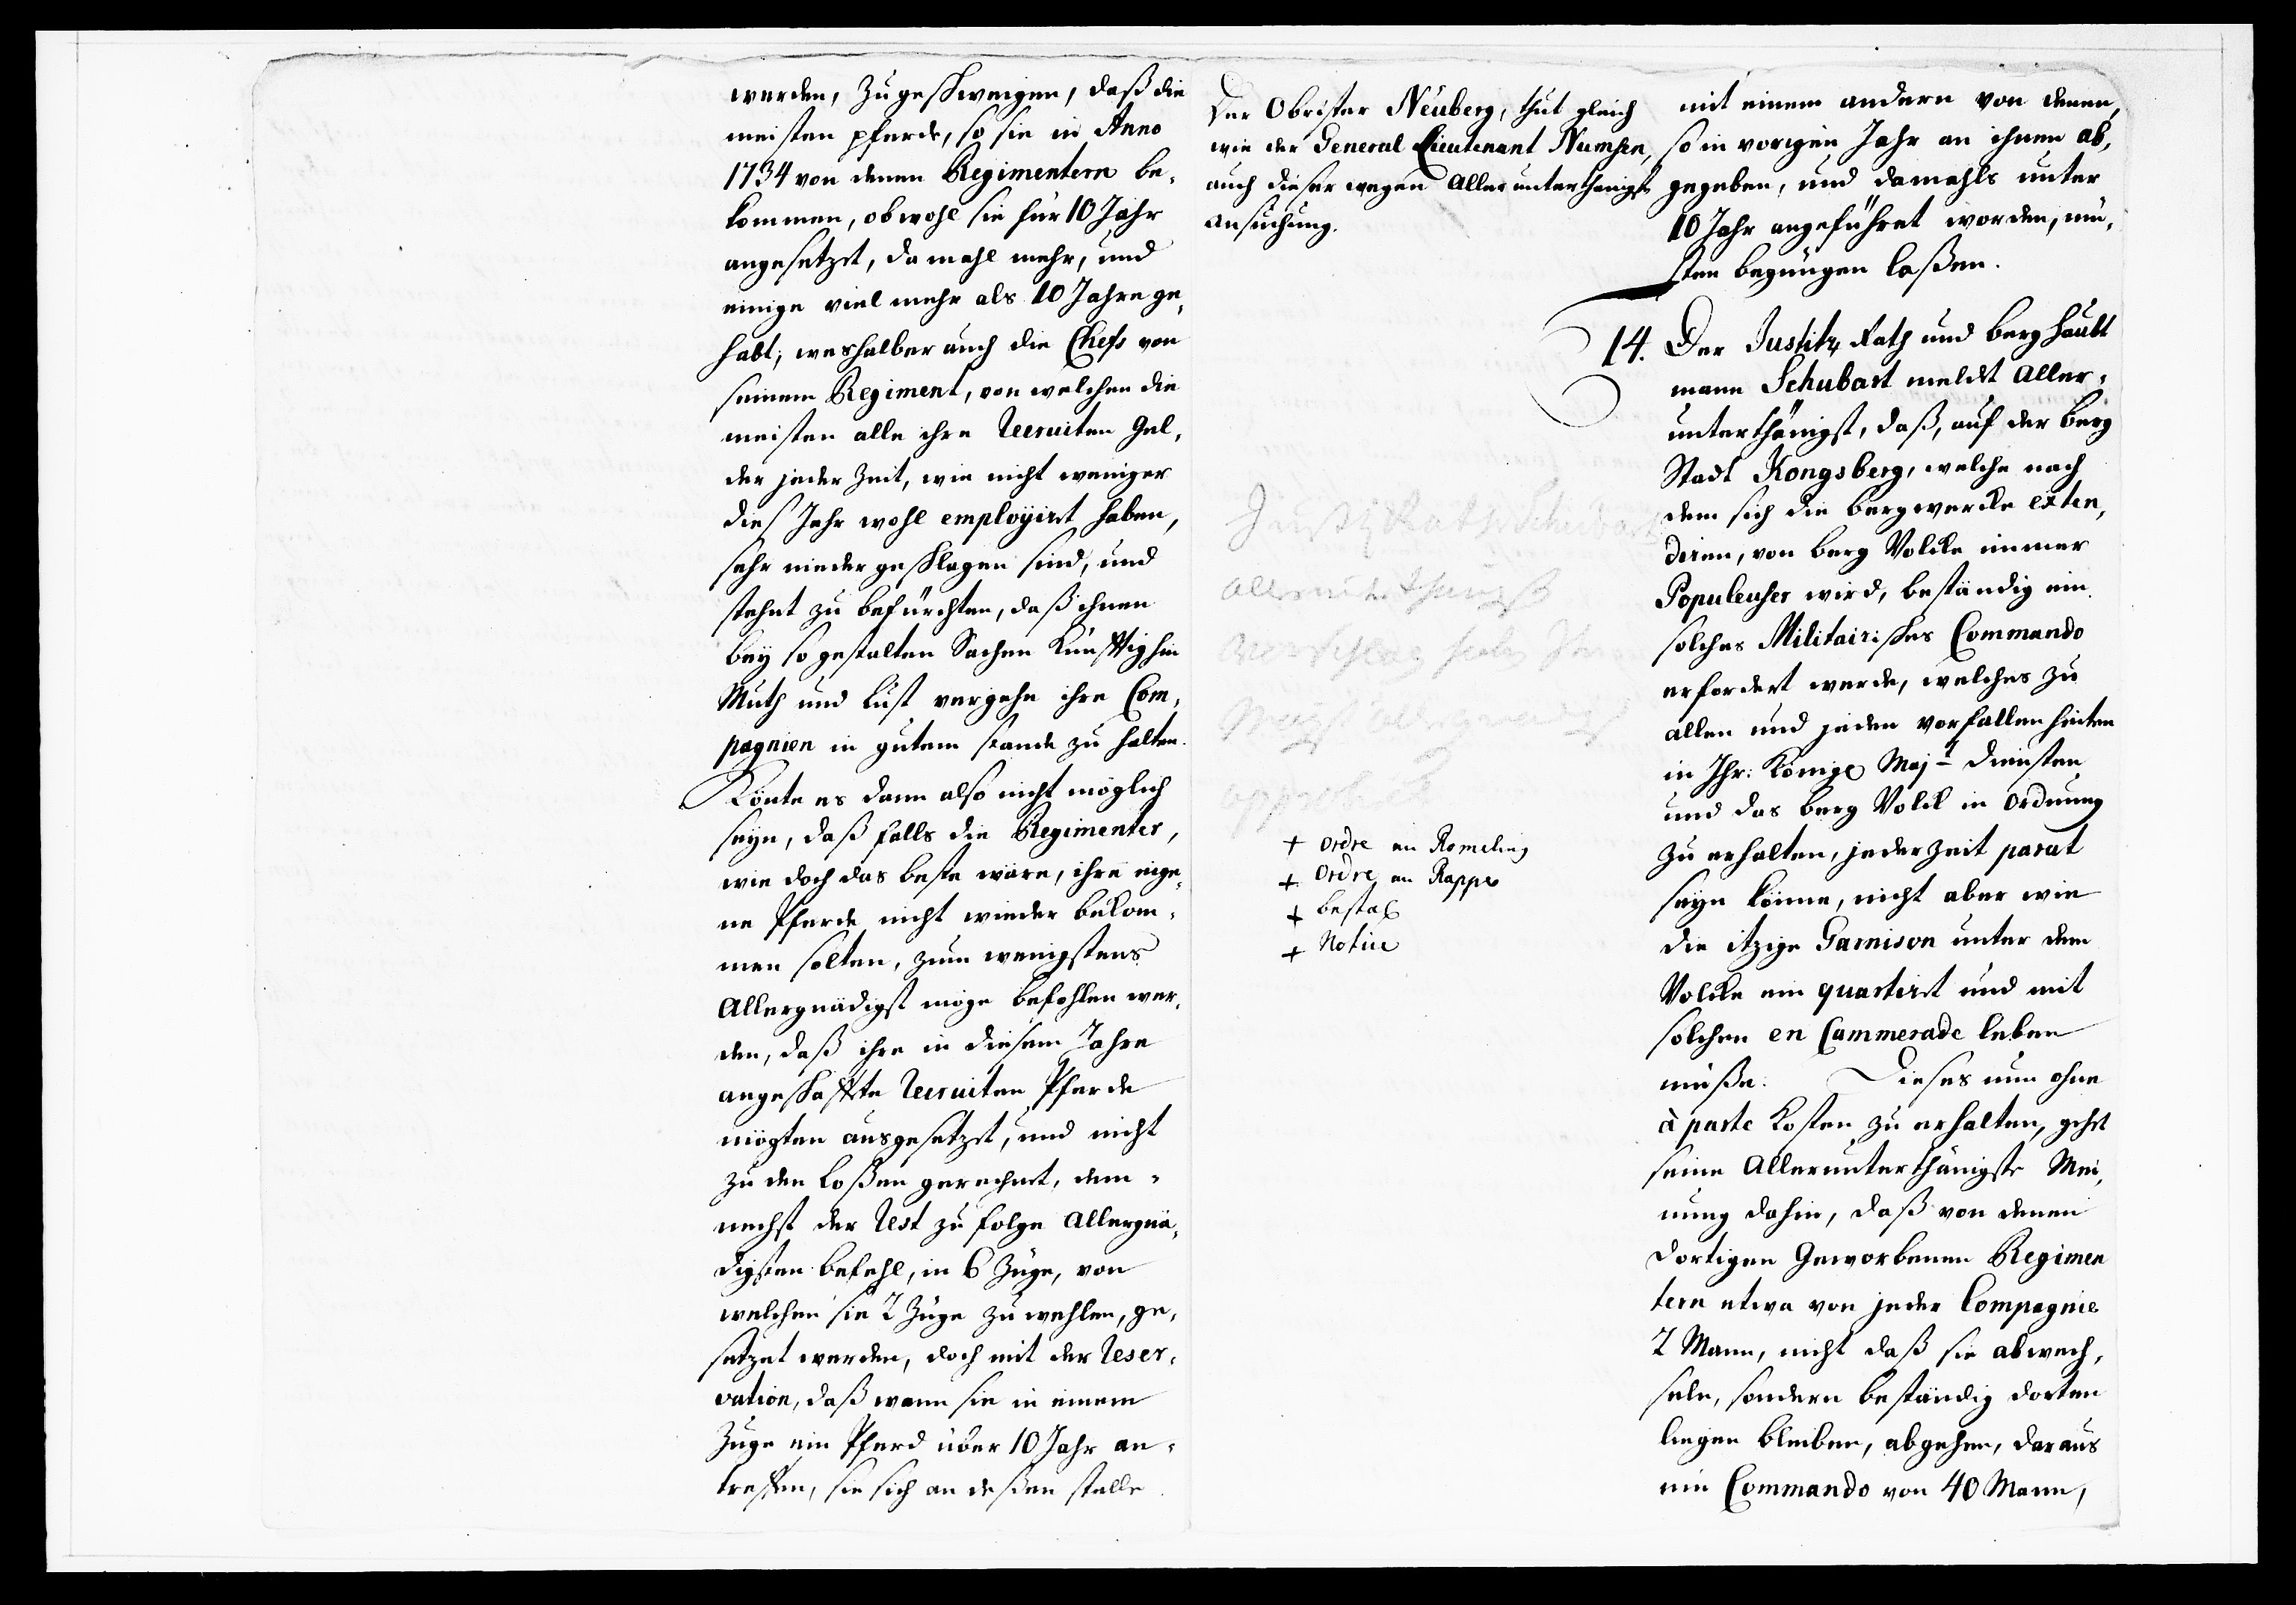 werden, zugeschweigen, daß die
meisten pferde, so sie in Anno
1734 von denen Regimentern be-
kommen, obwohl sie für 10 Jahr
angesetzet, damahl mehr, und
einige viel mehr als 10 Jahre ge-
habt; weshalber auch die Chefs von
seinem Regiment, von welchen die
meisten alle ihre Recruiten Gel-
der jeder Zeit, wie nicht weniger
dies Jahr wohl employiret haben,
sehr niedergeschlagen sind, und
stehet zu befürchten, daß ihnen
bey so gestalten Sachen künfftighin
Muth und Lust vergehe ihre Com-
pagnien in gutem stande zu halten.
Könte es dann also nicht möglich
seyn, daß falls die Regimenter,
wie doch das beste wäre, ihre eige-
ne Pferde nicht wieder bekom-
men solten, zum wenigstens
Allergnädigst möge befohlen wer-
den, daß ihre in diesem Jahre
angeschaffte Recruiten Pferde
mögten ausgesetzet, und nicht
zu den Loßen gerechnet, dem-
nechst der Rest zu folge Allergnä-
digsten befehl, in 6 Züge, von
welchen sie 2 Züge zu wehlen, ge-
setzet werden, doch mit der Reser-
vation, daß wann sie in einem
Zuge ein Pferd über 10 Jahr an-
treffen, sie sich an deßen stelle
Der Obrister Neuberg, thut gleich
wie der General Lieutenant Numsen,
auch dieser wegen Allerunterthänigste
Ansuchung.
Justitz Rath Schubart
allerunterthänigst
Vorschlag
allergnädigst
approbirt
+ Ordre an Romeling
+ Ordre an Rappe
+ bestal
+ Notice
mit einem andern von denen,
so in vorigen Jahr an ihnen ab-
gegeben, und damahls unter
10 Jahr angeführet worden, mü-
sten begnügen laßen.
14. Der Justitz Rath und berg Haubt
mann Schubart meldet Aller-
unterthänigst, daß, auf der berg
Stadt Kongsberg, welche nach
dem sich die bergwercke exten-
diren, von berg Volcke immer
Populeuser wird, beständig ein
solches Militairisches Commando
erfordert werde, welches zu
allen und jeden vorfallenheiten
in Ihr: Königl Maj.t diensten
und das berg Volck in Ordnung
zu erhalten, jederzeit parat
seyn könne, nicht aber wie
die itzige Garnison unter dem
Volcke ein quartirt und mit
solchen en Cammerade leben
müße. Dieses nun ohne
à parte Kosten zu erhalten, gehet
seine Allerunterthänigste Mei-
nung dahin, daß von denen
dortigen Geworbenen Regimen
tern etwa von jeder Compagnie
2 Mann, nicht daß sie abwech-
seln, sondern beständig dorten
liegen bleiben, abgehen, daraus
ein Commando von 40 Mann,